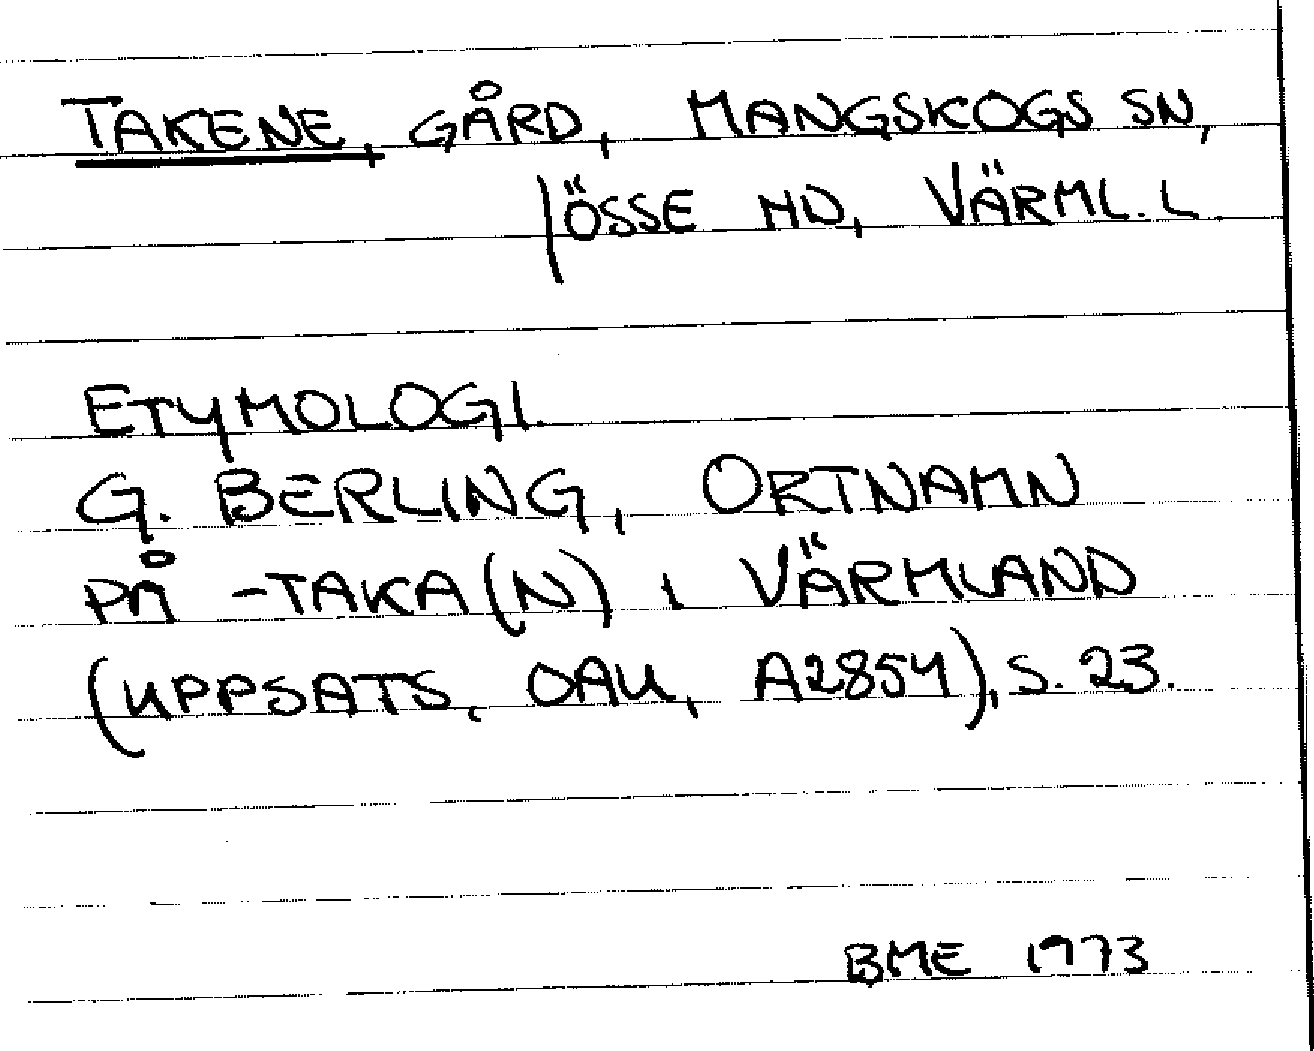 TAKENE, GÅRD, MANGSKOGS SN,
JÖSSE HD, VÄRML. L
ETYMOLOGI.
G. BERLING, ORTNAMN
PÅ -TAKA(N) I VÄRMLAND
(UPPSATS, OAU, A2854), S. 23.
BME 1973